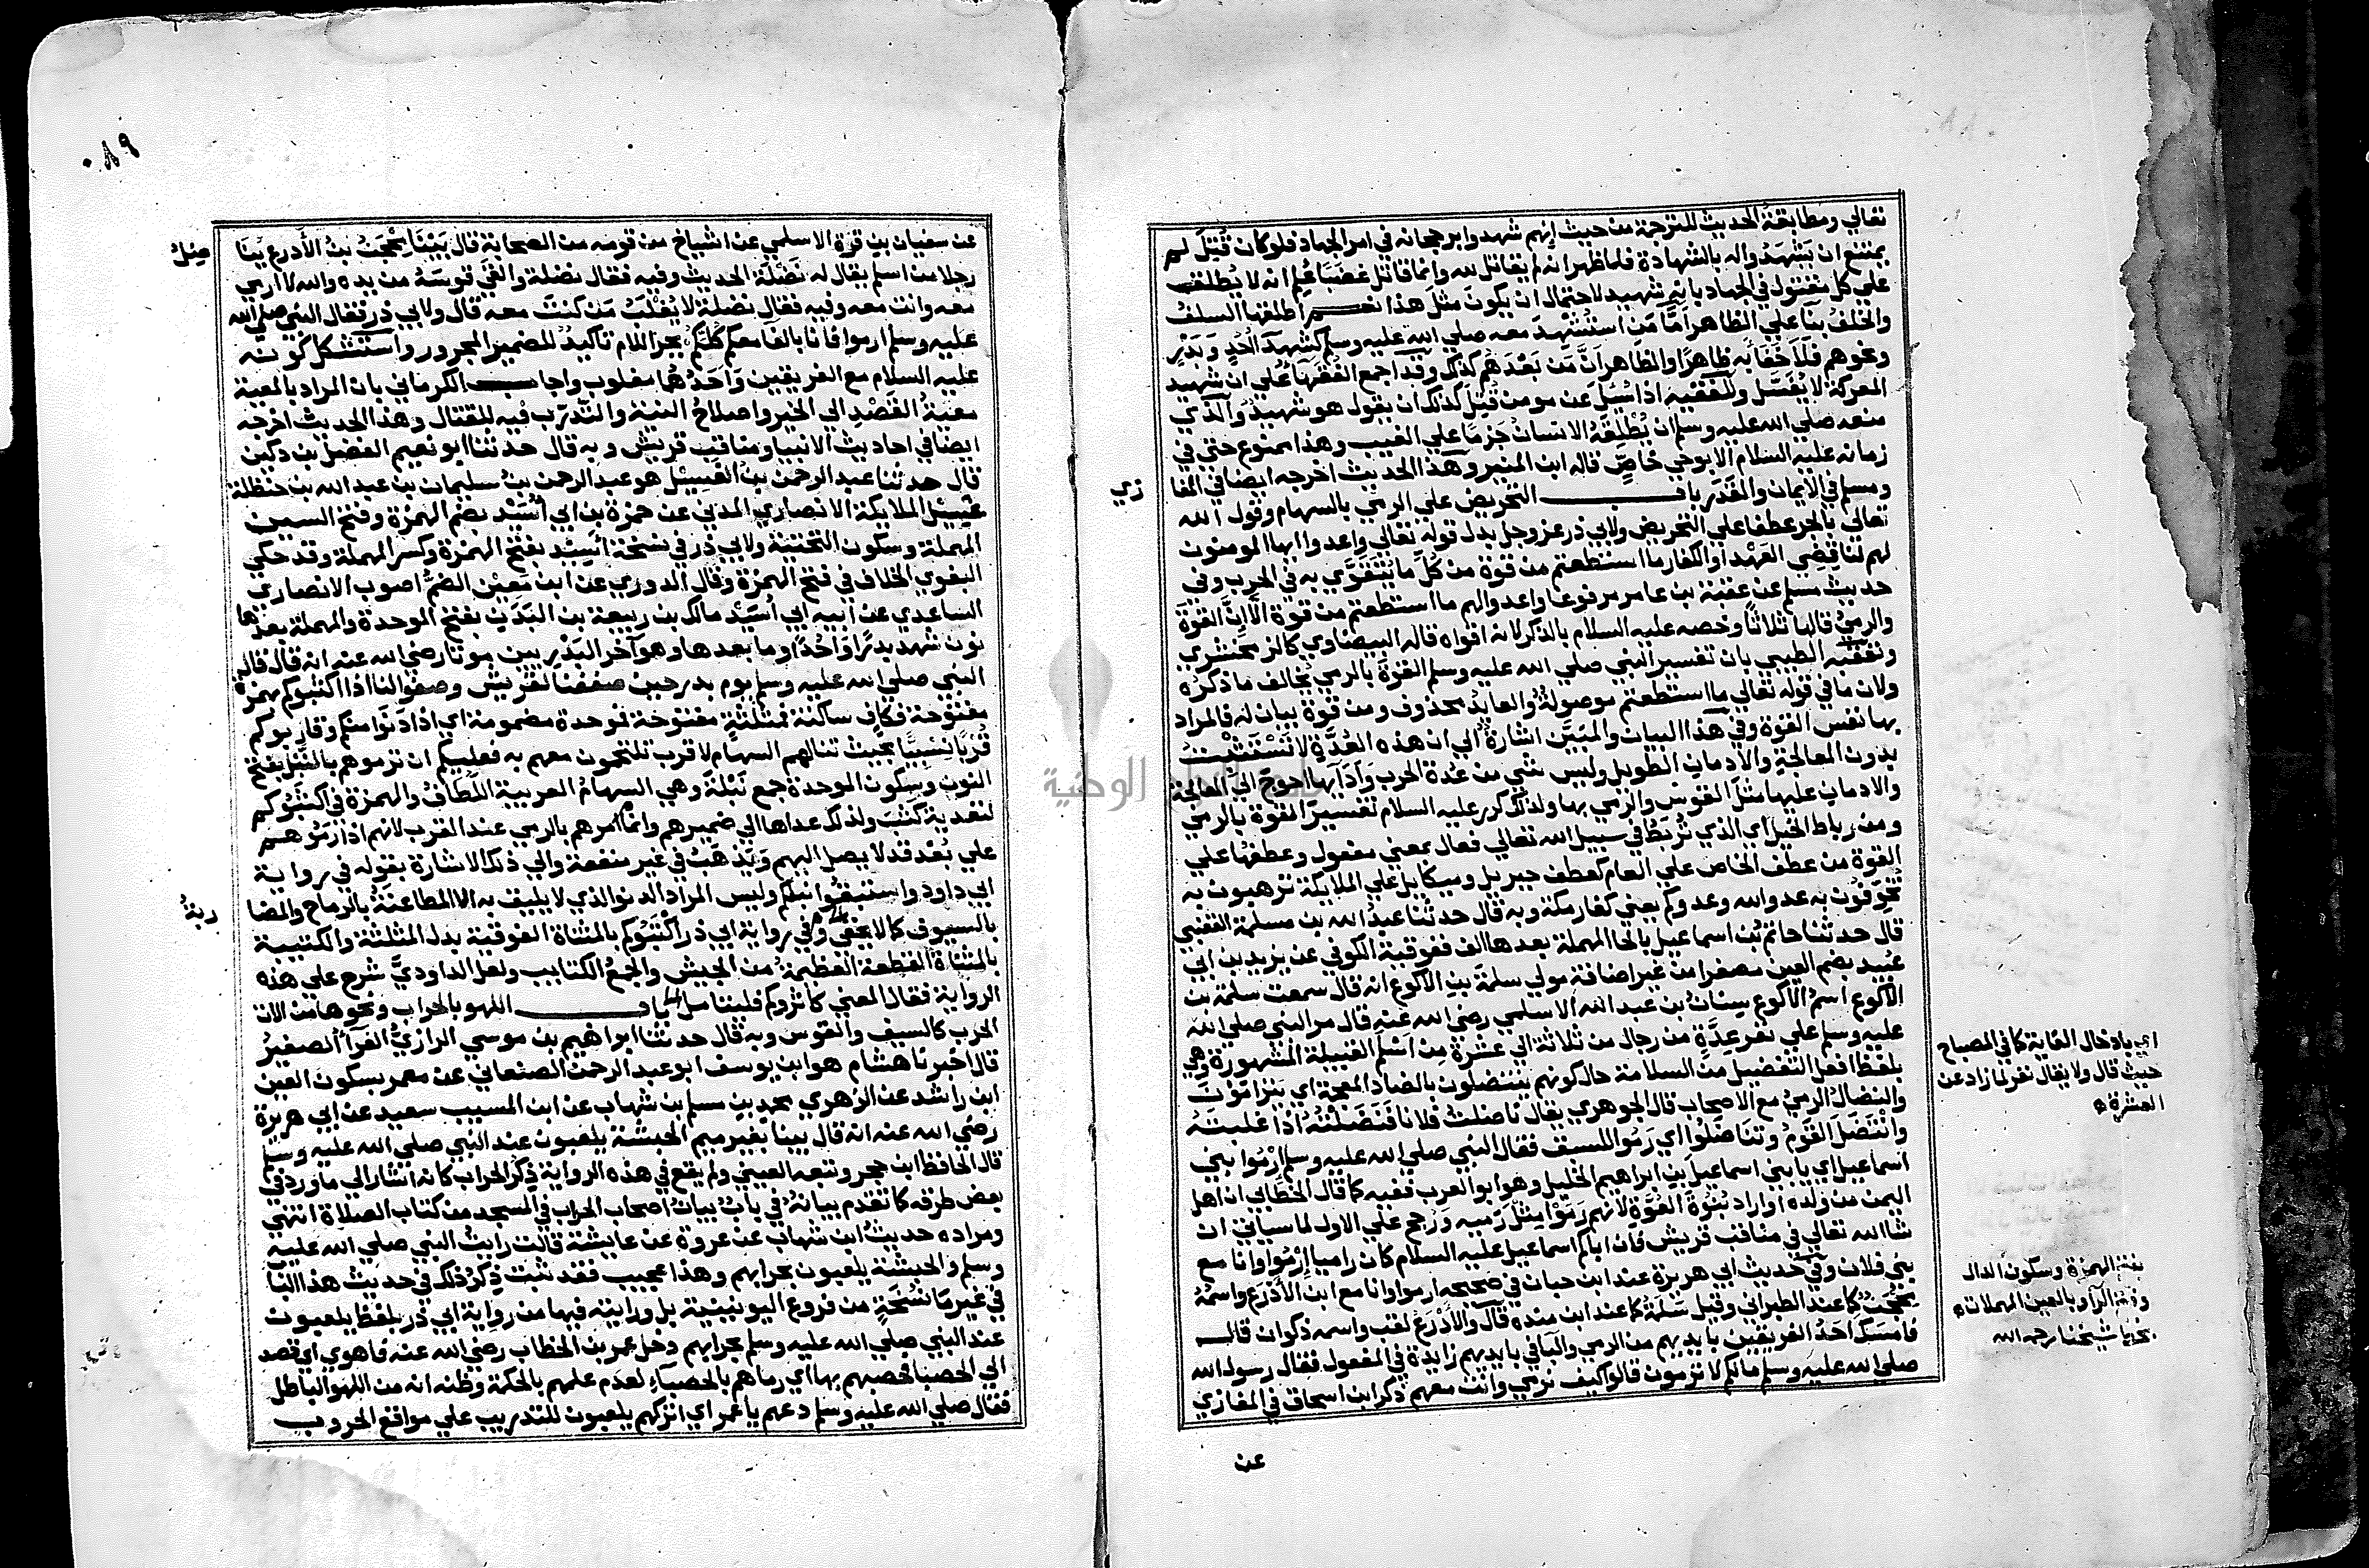 تعالي ومطابقة الحديث للترجمة من حيث انهم شهدوا برجحانه في امر الجهاد فلو كان قُتِلَ لم
يمتنع ان يَشْهَدُوا له بالشهادة فلما ظهر انه لم يقاتل لله وانما قاتل غضبًا عُلِم انه لا يُطلق
علي كل مقتول في الجهاد بانه شهيد لاحتمال ان يكون مثل هذا نعم اطلقها السلف
والخلف بنا علي الظاهر امّا مَن استُشْهِدَ معه صلي الله عليه وسلم كشهدآ اُحُدٍ وبَدْرٍ
ونحوهم فلا خفآ به ظاهرًا والظاهر انَّ مَن بَعْدَهم كذلك وقد اجمع الفقهآ علي ان شهيد
المعركة لا يُغسّل وللفقيه اذا سُئِل عن مومن قُتِل كذلك ان يقول هو شهيد والذي
منعه صلي الله عليه وسلم ان يُطْلِقَه الانسان جَزمًا علي الغيب وهذا ممنوع حتي في
زمانه عليه السلام الا بوحي خاصٍّ قاله ابن المنير وهذا الحديث اخرجه ايضا في المغا
زي
ومسلم في الايمان والقَدَر باب التحريض علي الرمي بالسهام وقول الله
تعالي بالجر عطفا علي التحريض ولابي ذر عز وجل بدل قوله تعالي واعدوا ايها المومنون
لهم لناقضي العَهْد او الكفار ما استطعتم من قوة من كل ما يُتَقَوَّي به في الحرب وفي
حديث مسلم عن عقبة بن عامر مرفوعا واعدوا لهم ما استطعتم من قوة الا انَّ القوة
والرميُ قالها ثلاثًا وخصه عليه السلام بالذكر لانه اقواه قاله البيضاوي كالزمخشري
وتعقبه الطيبي بان تفسير النبي صلي الله عليه وسلم القوة بالرمي يُخالف ما ذكرُه
ولان ما في قوله تعالي ما استطعتم موصولة والعايد محذوف ومن قوة بيان له فالمراد
بها نفس القوة وفي هذا البيان والمبيَّن اشارة الي ان هذه العُدّة لا تَسْتَتِبُّ
بدون المعالجة والادمان الطويل وليس شي من عُدة الحرب وآدابها احوج الي المعالجة
والادمان عليها مثل القوس والرمي بها ولذلك كرر عليه السلام تفسير القوة بالرمي
ومن رباط الخيل اي الذي تُربَط في سبيل الله تعالي فعال بمعني مفعول وعطفها علي
القوة من عطف الخاص علي العام كعطف جبريل وميكايل علي الملايكة ترهبون به
تُخوِّفُون به عدو الله وعدوكم يعني كفار مكة وبه قال حدثنا عبد الله بن مسلمة القعنبي
قال حدثنا حاتم بن اسماعيل بالحا المهملة بعدها الف ففوقية الكوفي عن يزيد بن ابي
عُبيد بضم العين مصغرا من غير اضافة مولي سلمة بن الاكوع انه قال سمعت سلمة بن
الاكوع اسمُ الاكوع سِنانُ بن عبد الله الاسلمي رضي الله عنه قال مر النبي صلي الله
عليه وسلم علي نفر عِدَّةٍ من رجال من ثلاثة الي عشرة مِن اَسْلَمَ القبيلة المشهورة وهي
بلفظ افعل التفضيل من السلامة حال كونهم ينتضلون بالضاد المعجمة اي يترامَوْن
والنضالُ الرميُ مع الاصحاب قال الجوهري يقال ناضلتُ فلانا فَنَضَلْتُه اذا غلبتَهُ
وانْتَضَل القومُ وتناضلُوا اي رَمَوا للسبق فقال النبي صلي الله عليه وسلم ارْمُوا بني
اسماعيل اي يا بني اسماعيل بن ابراهيم الخليل وهو ابو العرب ففيه كما قال الخطابي ان اهل
اليمن من ولده او اراد بُنُوّة القُوَّة لانهم رَمَوا مثل رَميه ورُجح علي الاول لما سياتي ان
شا الله تعالي في مناقب قريش فان اباكم اسماعيل عليه السلام كان راميا ارْمُوا وانا مع
بني فلان وفي حديث ابي هريرة عند ابن حبان في صحيحه ارموا وانا مع ابن الأدْرَع واسمُهُ
مِحْجَن كما عند الطبراني وقيل سَلَمة كما عند ابن منده قال والأدْرَع لقب واسمه ذكوان قال
فامسك احَدُ الفريقين بايديهم من الرمي والبآ في بايديهم زايدة في المفعول فقال رسول الله
صلي الله عليه وسلم ما لكم لا ترمون قالوا كيف نرمي وانت معهم ذكر ابن اسحاق في المغازي
عن
اي بادخال الغاية كما في المصباح
حيث قال ولا يقال نفر لما زاد عن
العشرة ه
بفتح الهمزة وسكون الدال
وفتح الرآ وبالعين المهملات ه
بخط شيخنا رحمه الله
٠٨٩
عن سفيان بن قرة الاسلمي عن اشياخ من قومه من الصحابة قال بَيْنَا مِحْجَن بن الأدرع يُنا
ضِلُ
رجلا من اسلم يقال له نَضْلة الحديث وفيه فقال نضلة والقَي قوسَهُ من يده والله لا ارمي
معه وانت معه وفيه فقال نضلة لا يُغْلَبُ مَن كنتَ معه قال ولابي ذر فقال النبي صلي الله
عليه وسلم ارموا فانا بالفا معكم كلِّكم بجر اللام تاكيد للضمير المجرور واستشكل كونه
عليه السلام مع الفريقين وأحَدُهُما مغلوب واجاب الكرماني بان المراد بالمعية
معيةُ القَصْدِ الي الخير واصلاح النية والتدرّب فيه للقتال وهذا الحديث اخرجه
ايضا في احاديث الانبيا ومناقب قريش وبه قال حدثنا ابو نعيم الفضل بن دكين
قال حدثنا عبد الرحمن بن الغسيل هو عبد الرحمن بن سليمان بن عبد الله بن حنظلة
غسيل الملايكة الانصاري المدني عن حمزة بن ابي اُسَيْد بضم الهمزة وفتح السين
المهملة وسكون التحتية ولابي ذر في نسخة أَسِيْد بفتح الهمزة وكسر المهملة وقد حكي
البغوي الخلاف في فتح الهمزة وقال الدوري عن ابن مَعِيْن الضمُّ اصوب الانصاري
الساعدي عن ابيه ابي اُسَيْد مالك بن ربيعة بن البَدَن بفتح الموحدة والمهملة بعدها
نون شهد بدرًا وأُحُدًا وما بعدها وهو آخر البَدْريين موتا رضي الله عنه انه قال قال
النبي صلي الله عليه وسلم يوم بدر حين صففنا لقريش وصفوا لنا اذا اكثبوكم بهمزة
مفتوحة فكاف ساكنة فمثلثة مفتوحة فموحدة مضمومة اي اذا دنَوا منكم وقاربوكم
قُرْبًا نِسْبِيًّا بحيث تنالهم السهام لا قرب تلتحمون معهم به فعليكم ان ترموهم بالنَّبْل بفتح
النون وسكون الموحدة جمع نَبْلَة وهي السهام العربية اللِطَافُ والهمزة في اكثبُوكم
لتعدية كَثَبَ ولذلك عداها الي ضميرهم وانما امرهم بالرمي عند القرب لانهم اذا رَمَوهم
علي بُعْد قد لا يصل اليهم ويَذهَبُ في غير منفعة والي ذلك الاشارة بقوله في رواية
ابي داود واستبقُوا نبلكم وليس المراد الدنو الذي لا يليق به الا المطاعنةُ بالرماح والمضا
ربةُ
بالسيوف كما لا يخفي وفي رواية ابي ذر اكتبُوكم بالمثناة الفوقية بدل المثلثة والكتيبة
بالمثناة القطعة العظيمة من الجيش والجمع الكتايب ولعل الداوديَّ شرح علي هذه
الرواية فقال المعني كاثروكم فليتامل باب اللهو بالحراب ونحوها من الات
الحرب كالسيف والقوس وبه قال حدثنا ابراهيم بن موسي الرازيُّ الفرّآ الصغيرُ
قال اخبرنا هشام هو ابن يوسف ابو عبد الرحمن الصنعاني عن معمر بسكون العين
ابن راشد عن الزهري محمد بن مسلم بن شهاب عن ابن المسيب سعيد عن ابي هريرة
رضي الله عنه انه قال بينا بغير ميم الحبشة يلعبون عند النبي صلي الله عليه وسلم
قال الحافظ ابن حجر وتبعه العيني ولم يقع في هذه الرواية ذِكر الحراب كانه اشار الي ما ورد في
بعض طرقه كما تقدم بيانُهُ في باب بيان اصحاب الحراب في المسجد من كتاب الصلاة انتهي
ومراده حديثُ ابن شهاب عن عروة عن عايشة قالت رايتُ النبي صلي الله عليه
وسلم والحبشة يلعبون بحرابهم وهذا عجيب فقد ثبت ذِكرُ ذلك في حديث هذا البا
في غير ما نُسْخَةٍ من فروع اليونينية بل ورايته فيها من رواية ابي ذر بلفظ يلعبون
عند النبي صلي الله عليه وسلم بحرابهم دخل عمر بن الخطاب رضي الله عنه فاهوي اي قصد
الي الحصبا فحصبهم بها اي رماهم بالحصبآء لعدم علمهم بالحكمة وظنه انه من اللهو الباطل
فقال صلي الله عليه وسلم دعهم يا عمر اي اتركهم يلعبون للتدريب علي مواقع الحروب